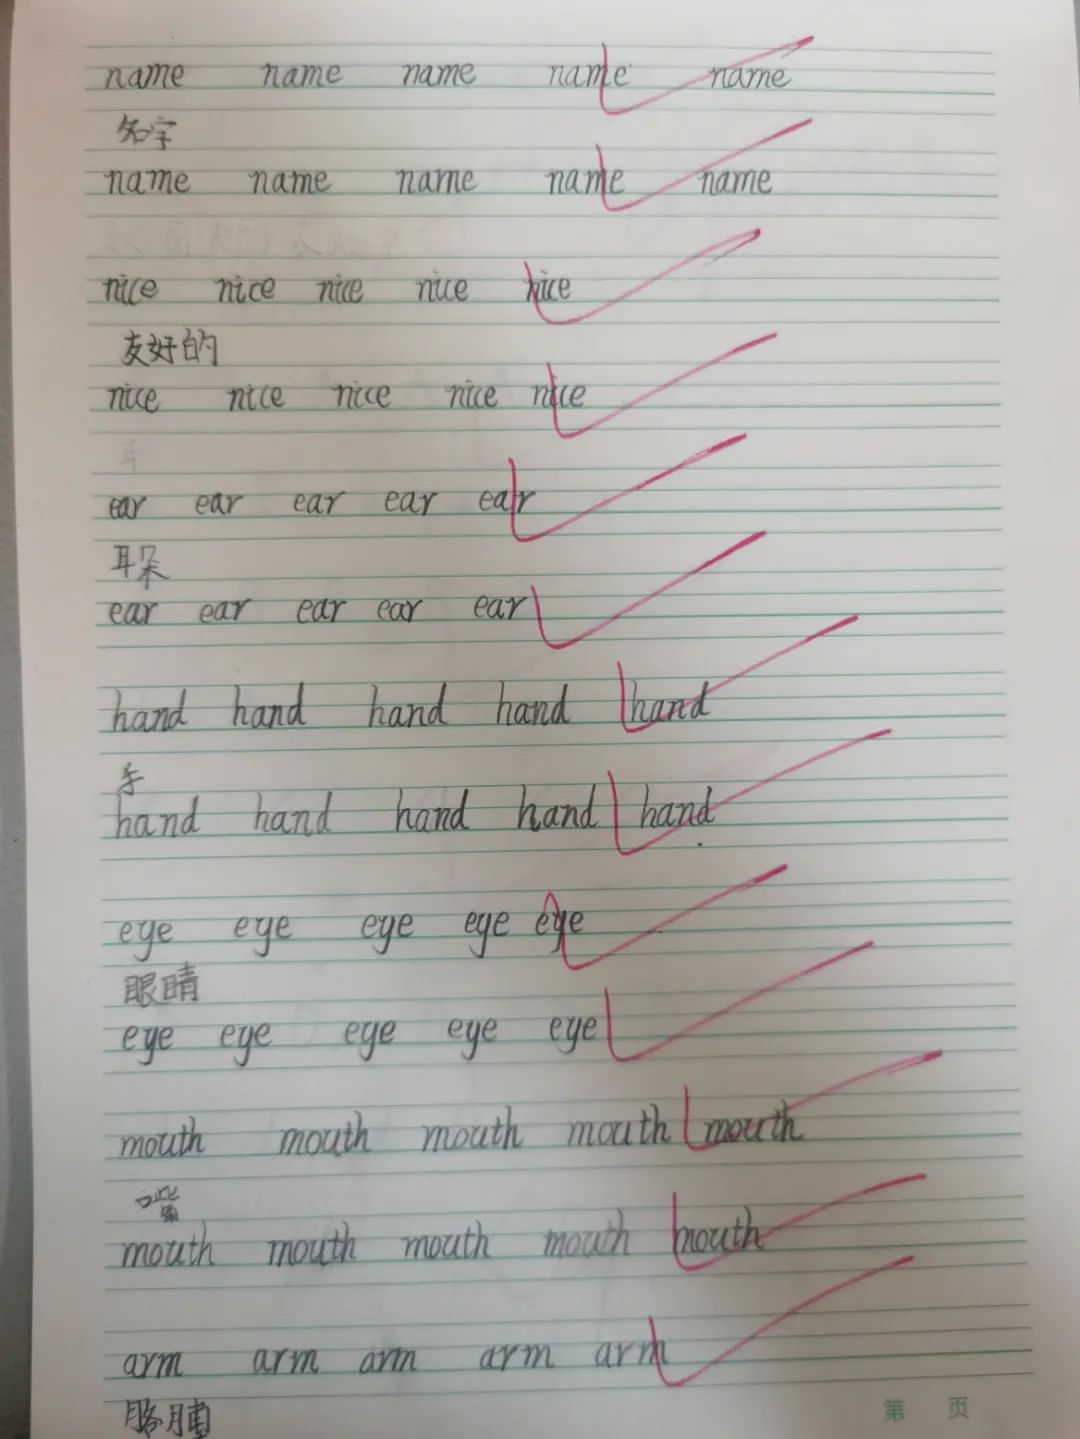 name name name name name
名字
name name name name name
nice nice nice nice nice
友好的
nice nice nice nice nice
ear ear ear ear ear
耳朵
ear ear ear ear ear
hand hand hand hand hand
手
hand hand hand hand hand
eye eye eye eye eye
眼睛
eye eye eye eye eye
mouth mouth mouth mouth mouth
嘴
mouth mouth mouth mouth mouth
arm arm arm arm arm
第 页